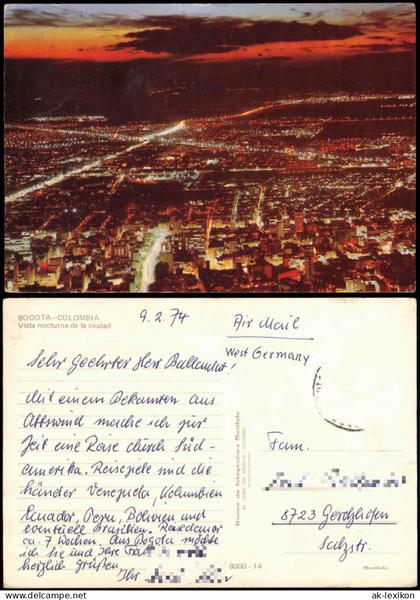 BOGOTA—COLOMBIA
Vista nocturna de la ciudad
9.2.74
Air Mail
West Germany
Sehr Geehrter Herr
Mit einem Bekannten aus
mache ich zur
Zeit eine Reise durch Süd-
amerika. Reiseziele sind die
Länder Venezuela, Kolumbien
Ecuador, Peru, Bolivien und
eventuelle Brasilien. Reisedauer
ca. 7 Wochen. Aus Bogota möchte
ich Sie und Ihre
herzlich grüßen.
Ihr
Fam.
8723 Gerolzhofen
Salzstr.
8000 - 14
Movifoto
© www.ak-lexikon.de